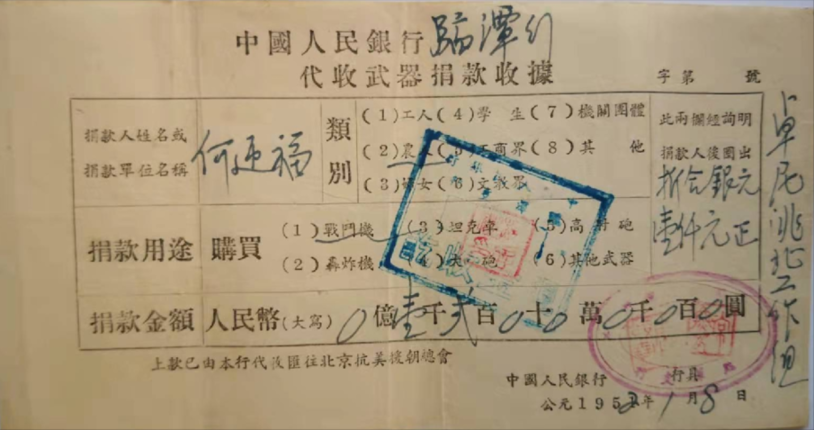 中國人民銀行臨潭行
代收武器捐款收據
字第 號
捐款人姓名或
捐款單位名稱
何廷福
類別
(1)工人(4)學 生(7)機關團體
(2)農 (5)工商界(8)其 他
(3)婦女(6)文教界
此兩欄經詢明
捐款人後圈出
折合銀元
壹仟元正
捐款用途 購買
(1)戰鬥機 (3)坦克車 (5)高射砲
(2)轟炸機 (4)大 砲 (6)其他武器
捐款金額 人民幣(大寫) 0億壹千弍百0十0萬0千0百0圓
上款已由本行代後匯往北京抗美援朝總會
中國人民銀行 行具
公元1952年1月8日
卓尼洮北工作組